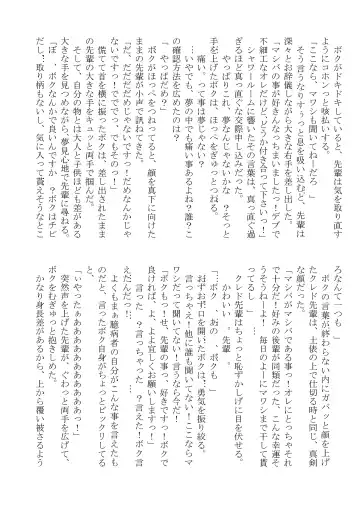 ボクがドキドキしていると、先輩は気を取り直す
ようにコホンっと咳払いする。
「ここなら、マワシも聞いてねーだろ」
そう言うなりすぅっと息を吸い込むと、先輩は
深々とお辞儀しながら大きな右手を差し出した。
「マシバの事が好きんなっちまいましたっ！デブで
不細工なオレだけど、どうか付き合って下さいっ！」
シャワールームに響いたその言葉は、真っ直ぐ過
ぎるほど真っ直ぐな交際申し込みだった。
やっぱりこれ、夢なんじゃないかな…？そっと
手を上げたボクは、ほっぺをぎゅっとつねる。
痛い。って事は夢じゃない？
…いやでも、夢の中でも痛い事あるよね？誰？こ
の確認方法を広めたのは？
「やっぱだめ？」
ボクがほっぺをつねってると、顔を真下に向けた
ままの先輩が小声で訊ねて来た。
「だ、だだだめじゃないですっ！だめなんかじゃ
ないですっ！でででっ、でもそのっ！」
慌てて首を横に振ったボクは、差し出されたまま
の先輩の大きな手をキュッと両手で掴んだ。
そして、自分の物とは大人と子供ほども差がある
大きな手を見つめながら、夢見心地で先輩に尋ねる。
「ぼ、ボクなんかで良いんですか？ボクはチビ
だし、取り柄もないし、気に入って貰えそうなとこ
ろなんて一つも…」
ボクの言葉が終わらない内にガバッと顔を上げ
たクレド先輩は、土俵の上で仕切る時と同じ、真剣
な顔だった。
「マシバがマシバである事っ！オレにとっちゃそれ
で十分だ！好みの後輩が同類だった。こんな幸運そ
うそうねーよ！毎日のよーにマワシまで干して貰
えてよ…」
クレド先輩はちょっと恥ずかしげに目を伏せる。
かわいい、先輩…
「…ボク…あの…ボクも…」
おずおずと口を開いたボクは、勇気を振り絞る。
言っちゃえ！他に誰も聞いてない！ここならマ
ワシだって聞いてない！言うなら今だ！
「ボクもっ！せ、先輩の事っ、好きですっ！ボクで
良ければ、よ、よよ宜しくお願いしますっ！」
言った？言っちゃった？言えた！ボク言
えたんだっ！
よくもまぁ臆病者の自分がこんな事を言えたも
のだと、言ったボク自身がちょっとビックリしてる
と、
「いやったぁああああああああああっ！」
突然声を上げた先輩が、ぐわっと両手を広げて、
ボクをむぎゅっと抱きしめた。
かなり身長差があるから、上から覆い被さるよう